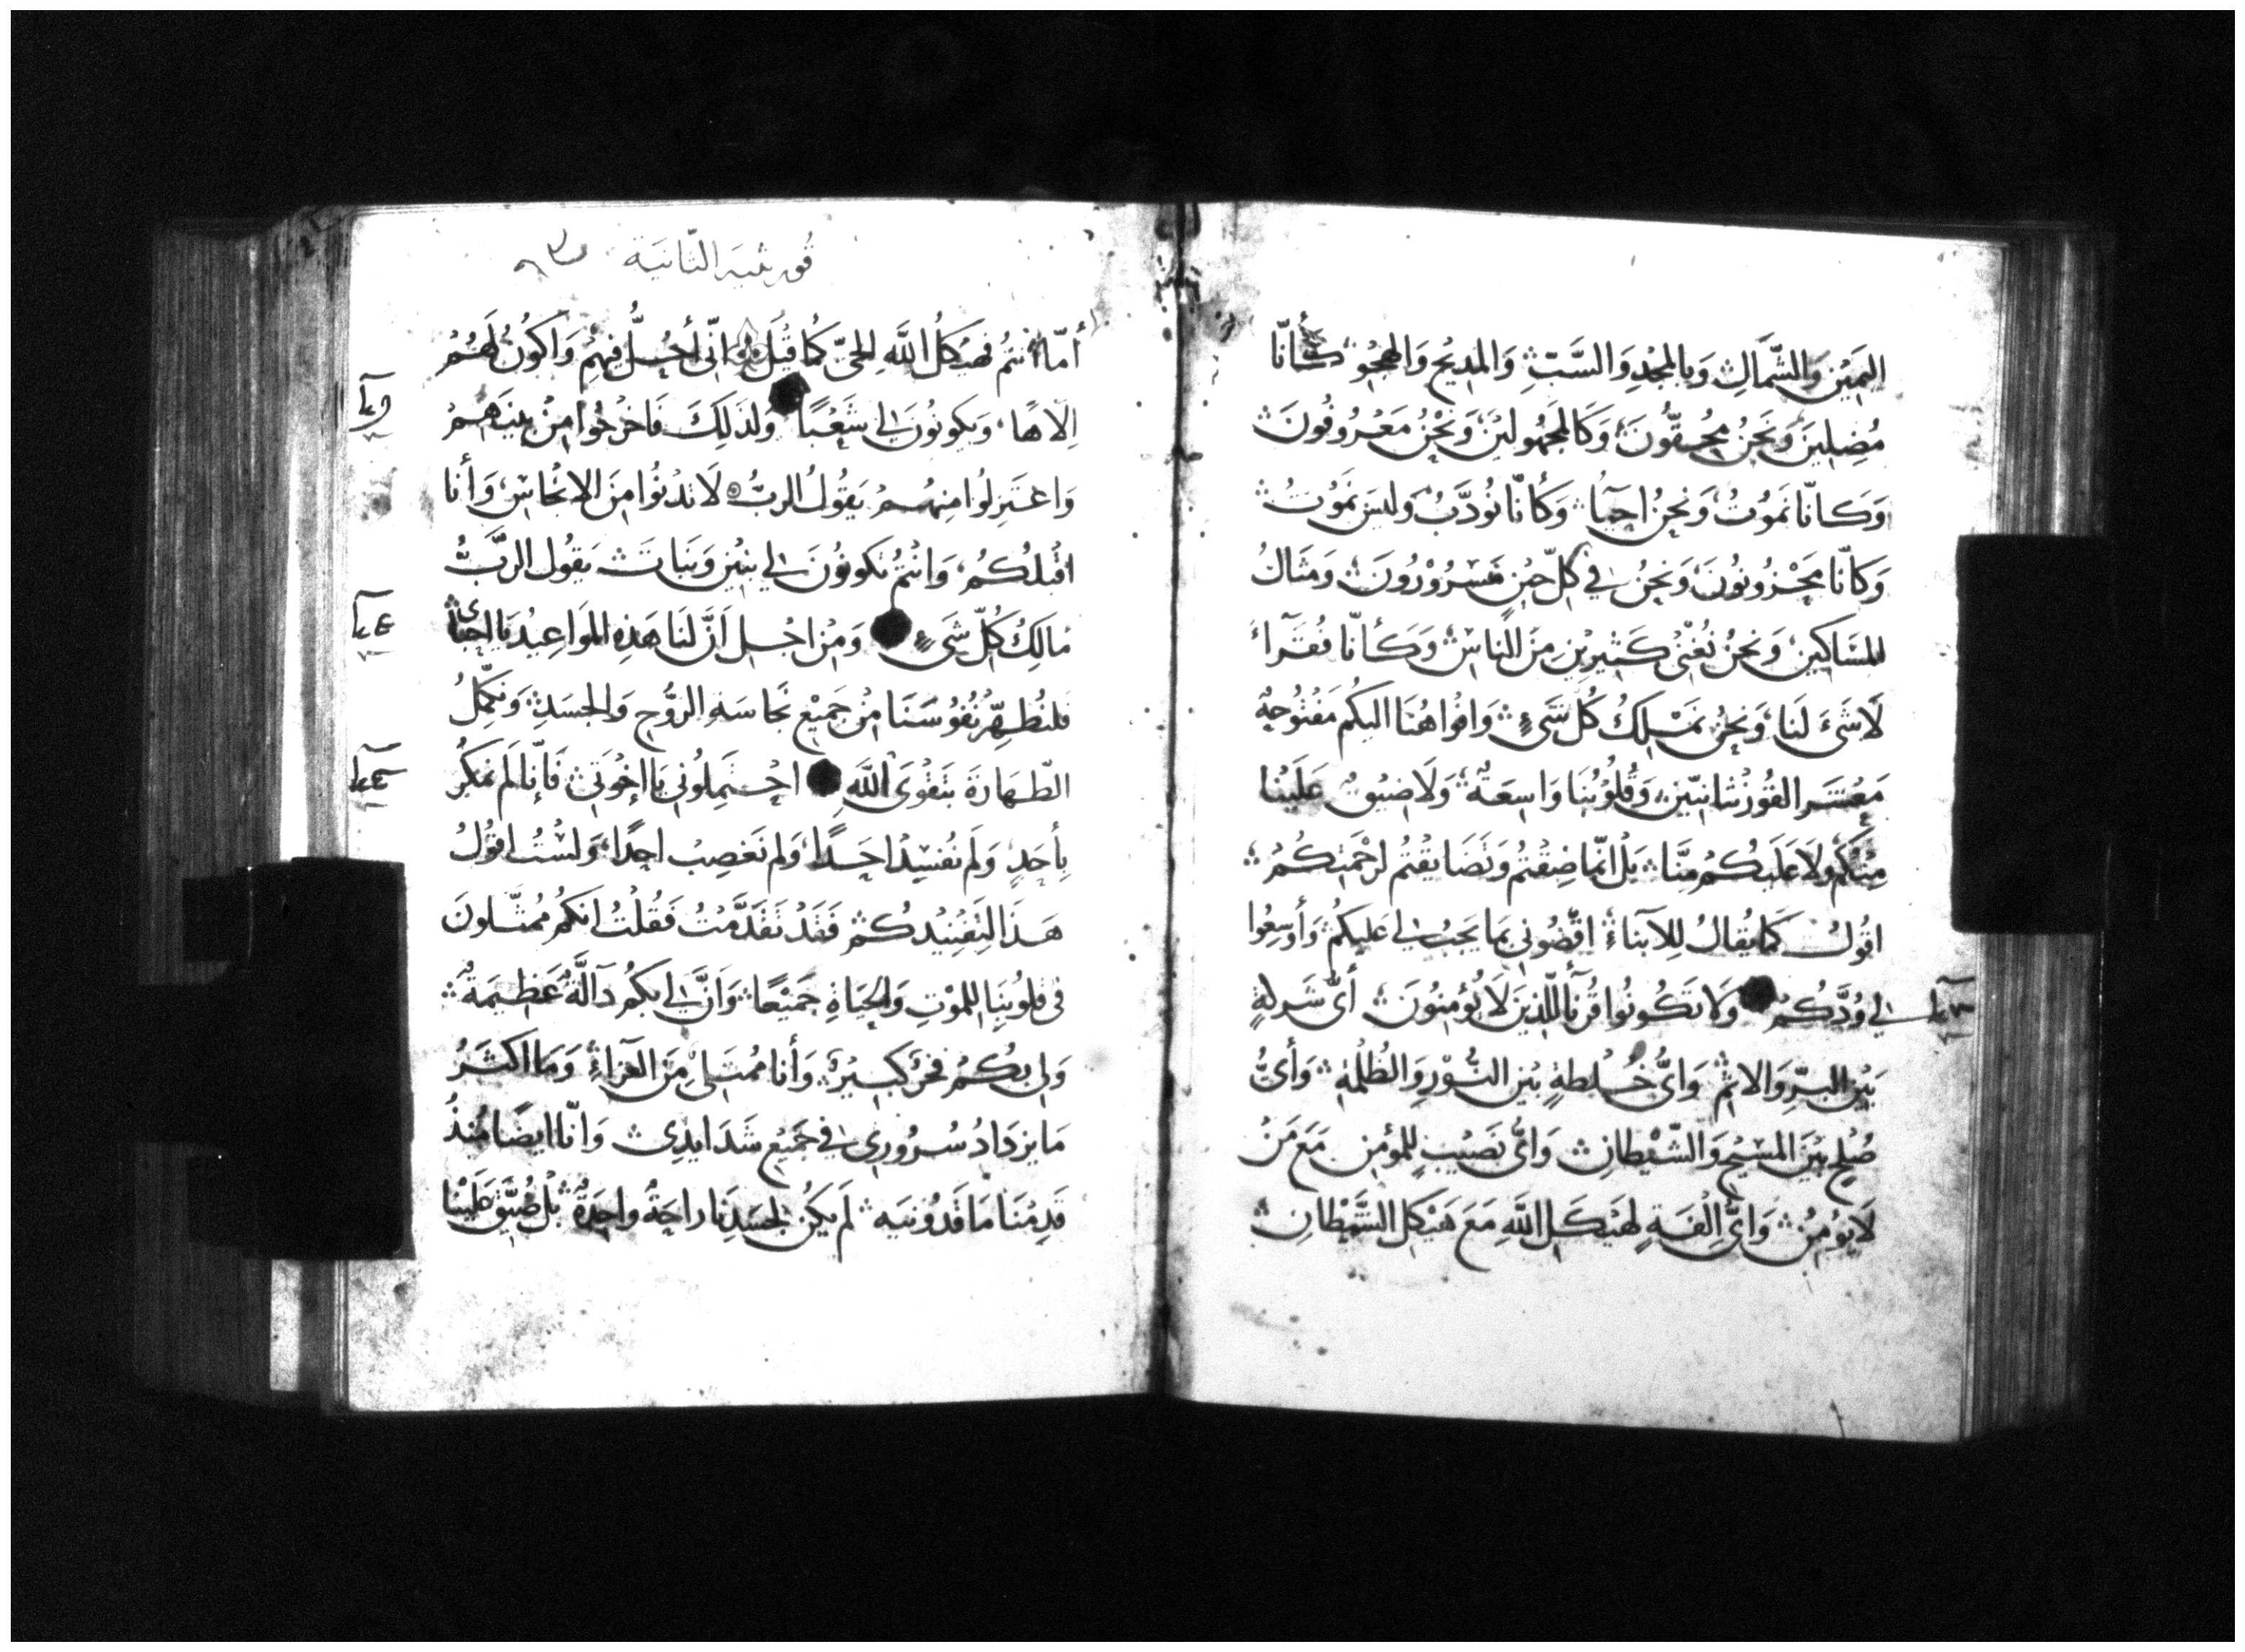 اليَمين وَالشّمَالِ وَبالمجدِ وَالسَّبّ وَالمديح وَالهجو كَأنّا
مُضِلينَ وَنَحنُ مُحِقّونَ وَكَالمجهُولينَ وَنَحْنُ مَعْرُوفُونَ
وَكَأنّا نَموُتُ وَنحنُ احيَآ وَكَأنّا نُودَّبُ وليسَ نَموُتُ
وَكانّا مَحْزونوُنَ وَنحنُ في كلّ حينٍ مَسْرُوْرُونَ وَمثَالُ
المسَاكين وَنحنُ نُغنى كَثيرينَ منَ الناسْ وَكَأنّا فُقَرآءُ
لَا شَىَ لَنا وَنحنُ نَمْلِكُ كُل شَىءٍ وَافواهُنَا اليكُم مَفتُوحةٌ
مَعْشَرَ القُورنثانيّين وَقُلُوُبُنَا وَاسِعَةٌ وَلَا ضيُقٌ عَلَينا
مِنْكُم وَلَا عَلَيكُم منَّا بَل انّما ضِقْتمُ وَتَضَايقتُم لرحْمَتِكُم
اقوُلُ كَمَا يُقَالُ لِلآبناءْ اقضُوني بمَا يَجبُ لي عَليكمُ وَأوسِعُوا
لي وُدَّكُم وَلا تَكُونُوا قُرنآ للّذينَ لَا يُؤمنُونَ أىُّ شَركةٍ
بَيْن البرِّ وَالاثم وَاىُّ خُلْطَةٍ بيْن النُّوْرِ وَالظُلْمَةِ وَأىُّ
صُلحٍ بيْنَ المسَيْحِ وَالشّيْطانِ وَاىُّ نَصَيْبٍ للمؤمن مَعَ مَنْ
لَا يُؤمنُ وَاىُّ الفَةٍ لِهَيْكلِ اللَّهِ مَعَ هَيْكلِ الشَّيْطانِ
قورنثيه الثانيَة
أمّا انتمُ فهَيْكَلُ اللَّه الحىّ كَما قيْلَ انّى أحُلُّ فيهِمْ وَاكوُنُ لَهُمُ
الاهًا وَيكونُونَ لي شَعْبًا وَلذلِكَ فَاخرجُوا منْ بينهِم
وَاعْتَزِلُوا منِهُمُ يَقوُلُ الربُّ لَا تدْنُوا منَ الانجاسْ وَأنا
اقبْلُكُم وَانتمُ تكونُونَ لي بنيْن وَبنَاتَ يَقوُلُ الربَّ
مَالِكُ كُلّ شَىءٍ وَمنْ اجل اَنَّ لنَا هَذهِ المَوَاعِيدُ يَا احبآئ
فلنُطهِّرْ نُفوُسَنَا منْ جَميْع نجَاسَةِ الرُّوح وَالجسَدِ وَنكمِّلُ
الطّهَارَةَ بتَقْوَى اللَّهِ احتَمِلوُني يَا اخوَتى فَإنّا لَم نمكُر
بأحَدٍ وَلَم نُفسِدْ احَدًا وَلم نَغصِبْ احدًا وَلسْتُ اقوُلُ
هَذَا لتَفْنيْدكُم فَقَدْ تَقَدَّمْتُ فَقُلْتُ انكُمْ مُمثّلونَ
فى قلوُبنَا للموْتِ وَالحيَاةِ جَميْعًا وَانَّ لي بكُم دَآلّةٌ عَظيمَةٌ
وَلى بكُم فخرٌ كبيْرٌ وَأنا مُمتَلىٌ مِنَ العَزآءْ وَمَا اكثَرُ
مَا يزدَادُ سُرُورى في جَميْع شَدَايدِى وَانّا ايضًا مُنذُ
قَدِمْنَا مَاقَدُونيه لَم يكنْ لجسَدِنا راحَةٌ واحِدَةٌ بلْ ضُيِّقَ عَليْنا